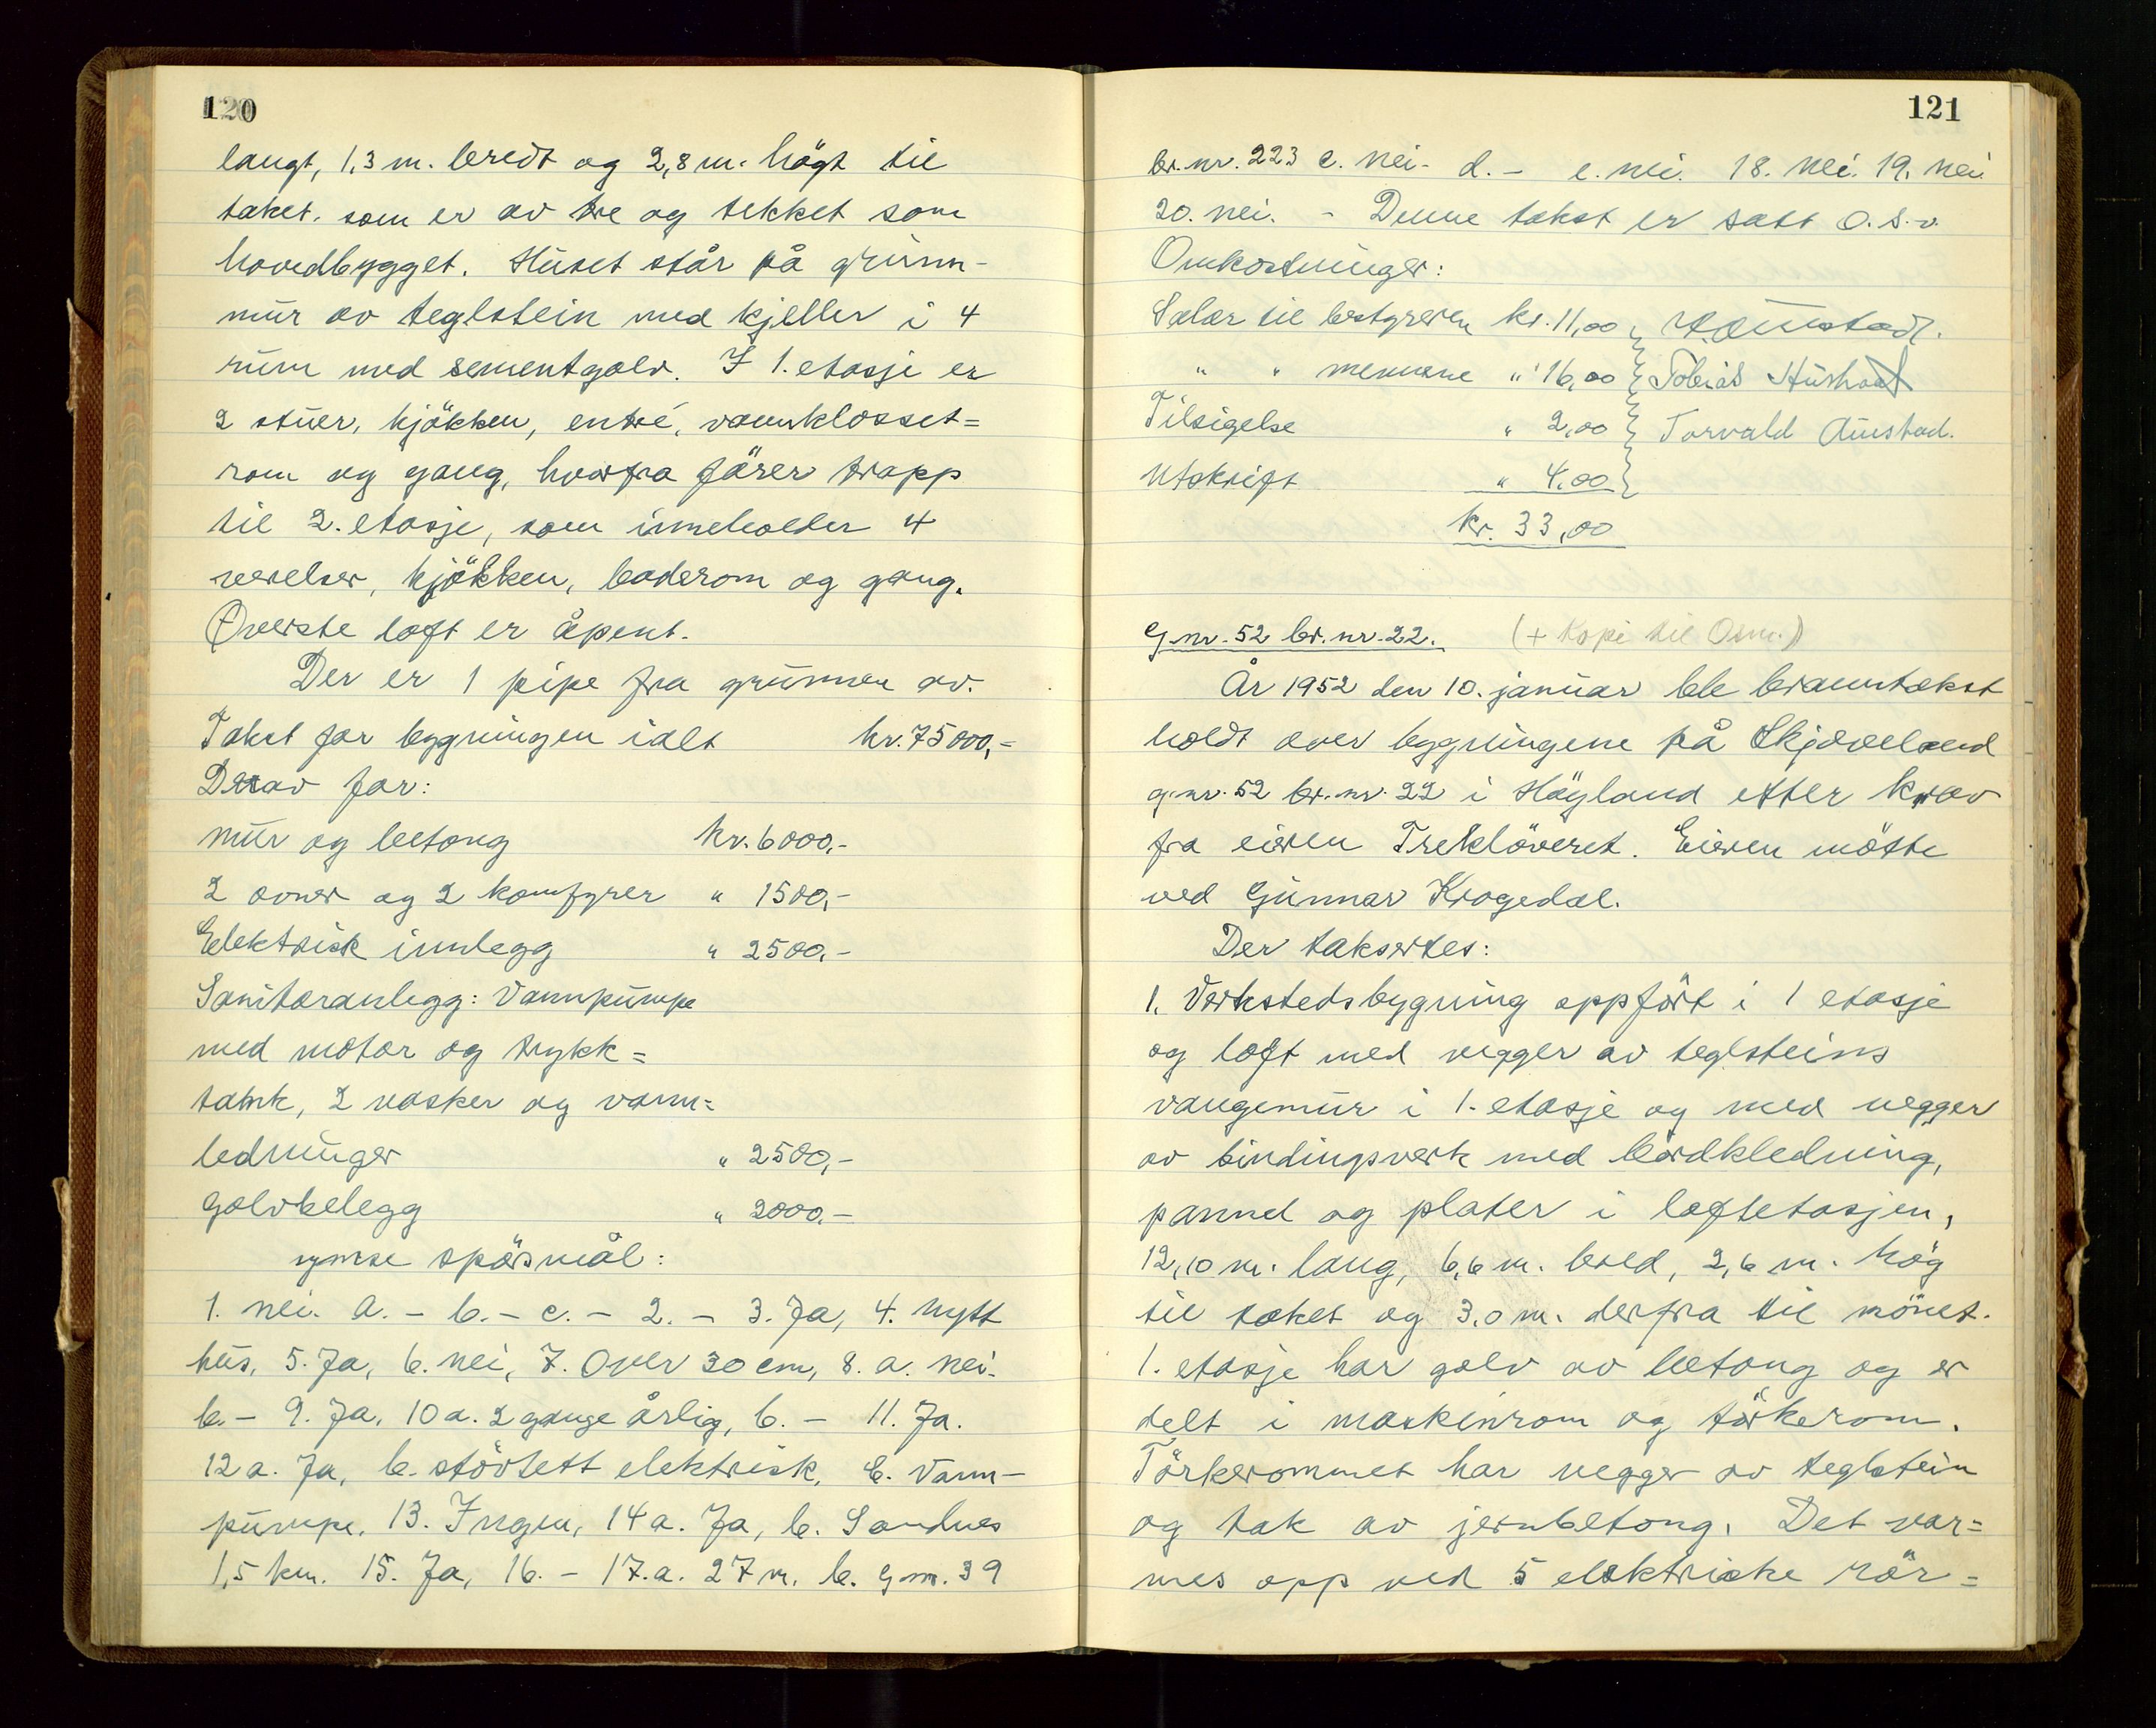 120
langt, 1,3 m. bredt og 2,8 m. högt til
taket. som er av tre og tekket som
hovedbygget. Huset står på grunn-
mur av teglstein med kjeller i 4
rum med sementgolv. I 1. etasje er
2 stuer, kjökken, entré, vannklosset=
rom og gang, hvorfra förer trapp
til 2. etasje, som inneholder 4
verelser, kjökken, baderom og gang.
Øverste loft er åpent.
Der er 1 pipe fra grunnen av.
Takst for bygningen ialt kr. 75000,-
Derav for:
mur og betong kr. 6000,-
2 ovner og 2 komfyrer " 1500,-
Elektrisk innlegg " 2500,-
Sanitæranlegg: Vannpumpe
med motor og trykk=
tank, 2 vasker og vann=
ledninger " 2500,-
Golvbelegg " 2000,-
ymse spörsmål:
1. nei. a. - b. - c. - 2. - 3. Ja, 4. nytt
hus, 5. Ja, 6. nei, 7. Over 30 cm, 8. a. nei.
b. - 9. Ja, 10 a. 2 gange årlig, b. - 11. Ja.
12 a. Ja, b. stövtett elektrisk, c. Vann-
pumpe, 13. Ingen, 14 a. Ja, b. Sandnes
1,5 km. 15. Ja, 16. - 17. a. 27 m. b. g.nr. 39
121
br. nr. 223 c. nei- d. - e. nei. 18. nei. 19. nei.
20. nei. - Denne takst er satt o.s.v.
Omkostninger:
Salær til bestyreren kr. 11,00 Aunstad.
" " mennene " 16,00 Tobias Hushovd
Tilsigelse " 2,00 Torvald Austad.
Utskrift " 4,00
kr. 33,00
G.nr. 52 br. nr. 22. (+ Kopi til Osm.)
År 1952 den 10. januar ble branntakst
holdt over bygningene på Skjæveland
g.nr. 52 br. nr. 22 i Höyland etter krav
fra eieren Treklöveret. Eieren mötte
ved Gunnar Krogedal.
Der taksertes:
1. Verkstedsbygning oppfört i 1 etasje
og loft med vegger av teglsteins
vangemur i 1. etasje og med vegger
av bindingsverk med bordkledning,
pannel og plater i loftetasjen,
12,10 m. lang, 6,6 m. bred, 2,6 m. hög
til taket og 3,0 m. derfra til mönet.
1. etasje har golv av betong og er
delt i maskinrom og törkerom.
Törkerommet har vegger av teglstein
og tak av jernbetong. Det var=
mes opp ved 5 elektriske rör=